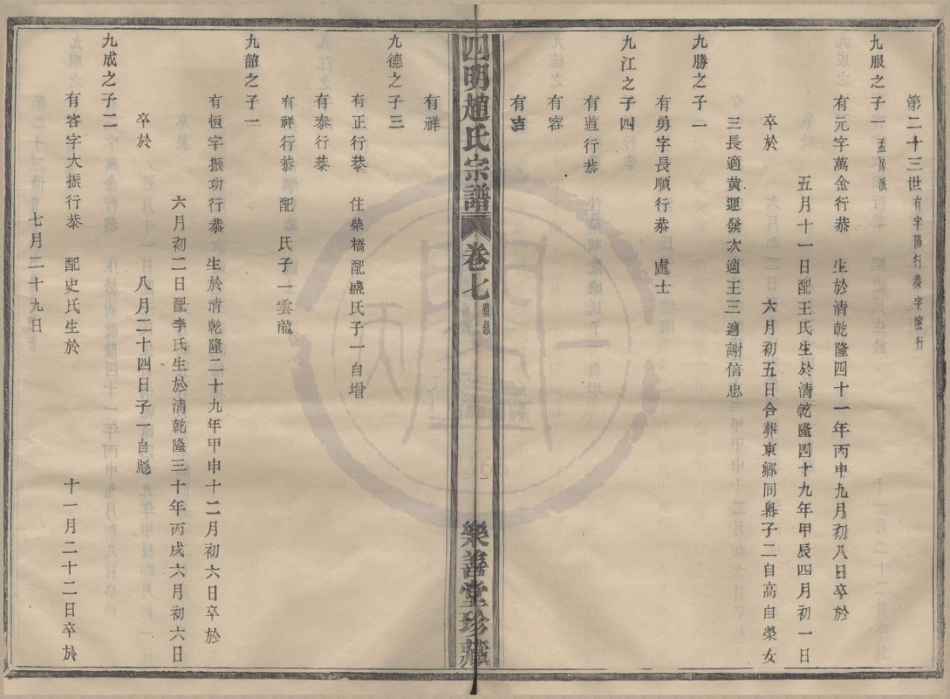 第二十三世有字闊行恭字諧行
九服之子一孟房派
有元字萬金行恭 生於清乾隆四十一年丙申九月初八日卒於
五月十一日配王氏生於清乾隆四十九年甲辰四月初一日
卒於 六月初五日合葬東鄉同穴子二自高自榮女
三長適黃運發次適王三適謝信忠
九勝之子一
有勇字長順行恭 處士
九江之子四
有道行恭
有容
有吉
四明趙氏宗譜 卷七 世錄 一 樂善堂珍藏
有祥
九德之子三
有正行恭 住柴橋配盛氏子一自增
有泰行恭
有祥行恭 配 氏子一雲龍
九韶之子一
有恒字振功行恭 生於清乾隆二十九年甲申十二月初六日卒於
六月初二日配李氏生於清乾隆三十年丙戌六月初六日
卒於 八月二十四日子一自彪
九成之子二
有容字大振行恭 配史氏生於 十一月二十二日卒於
七月二十九日